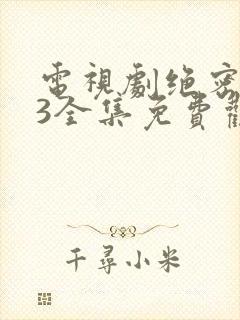 電視劇绝密
3全集免費
千尋小米